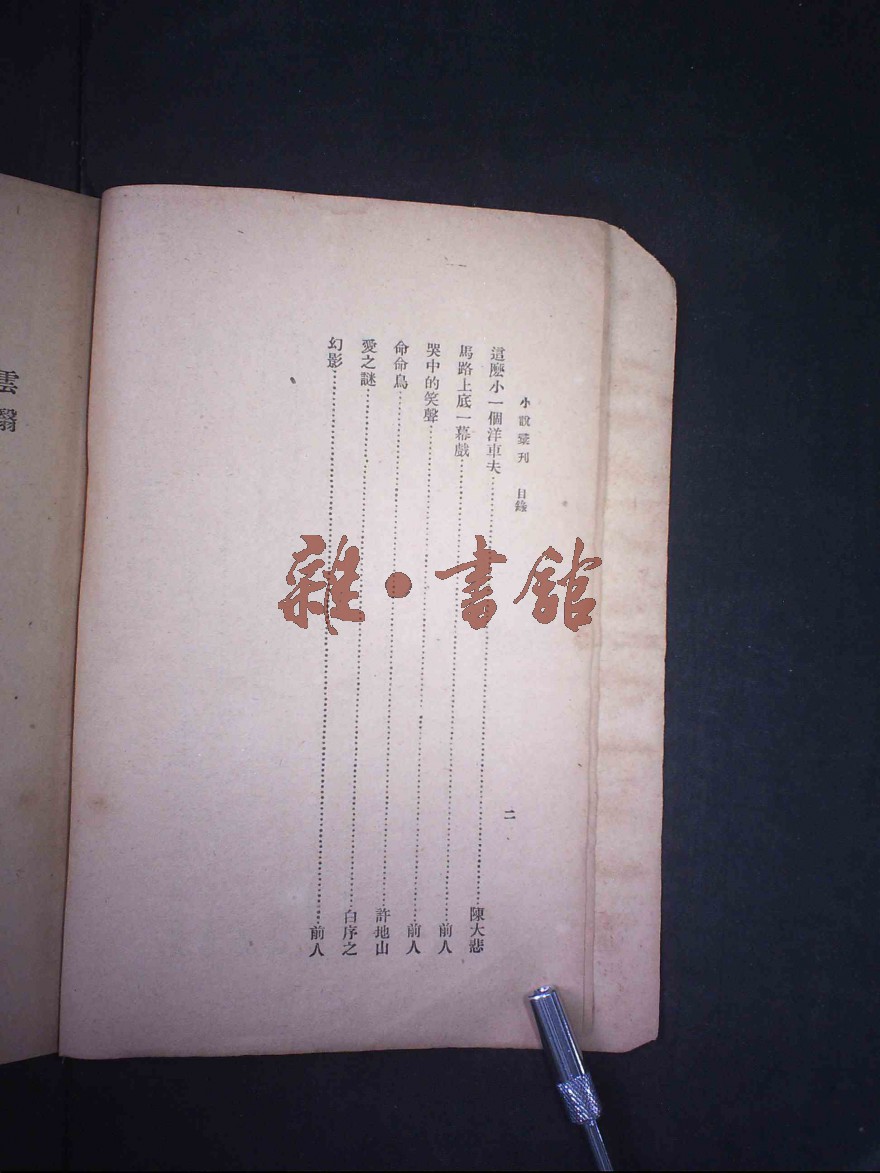 小說彙刊 目錄 二
這麽小一個洋車夫………陳大悲
馬路上底一幕戲………前人
哭中的笑聲………前人
命命鳥………許地山
愛之謎………白序之
幻影………前人
雲翳
雜·書館